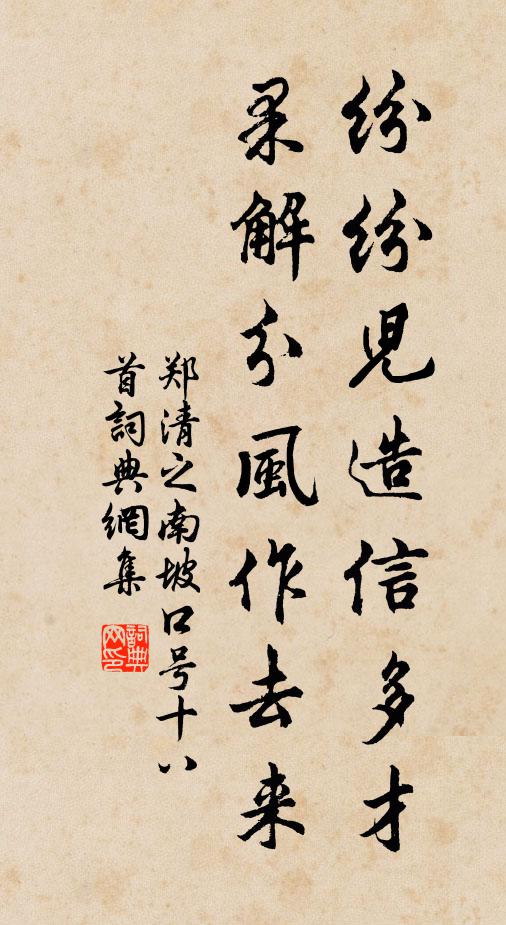 纷纷児造信多才
果解分風作去来
郑清之南坡口号十八
首詞典網集
詞典网印